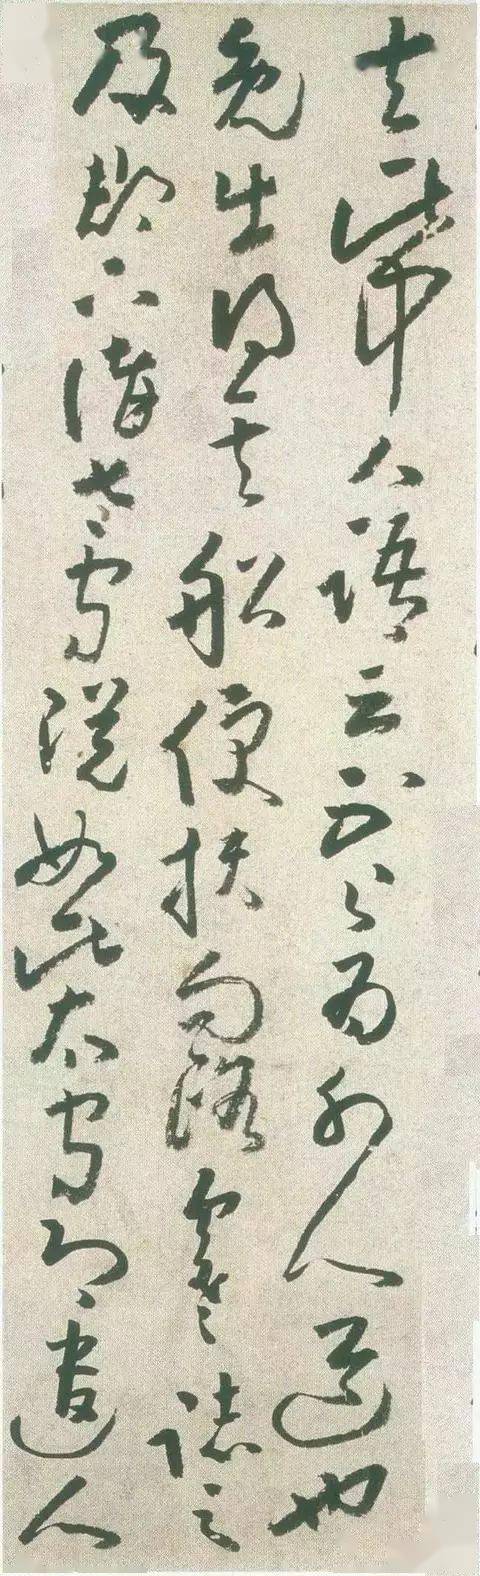 去此中人語云不足為外人道也
既出得其船便扶向路處處誌之
及郡下詣太守說如此太守即遣人